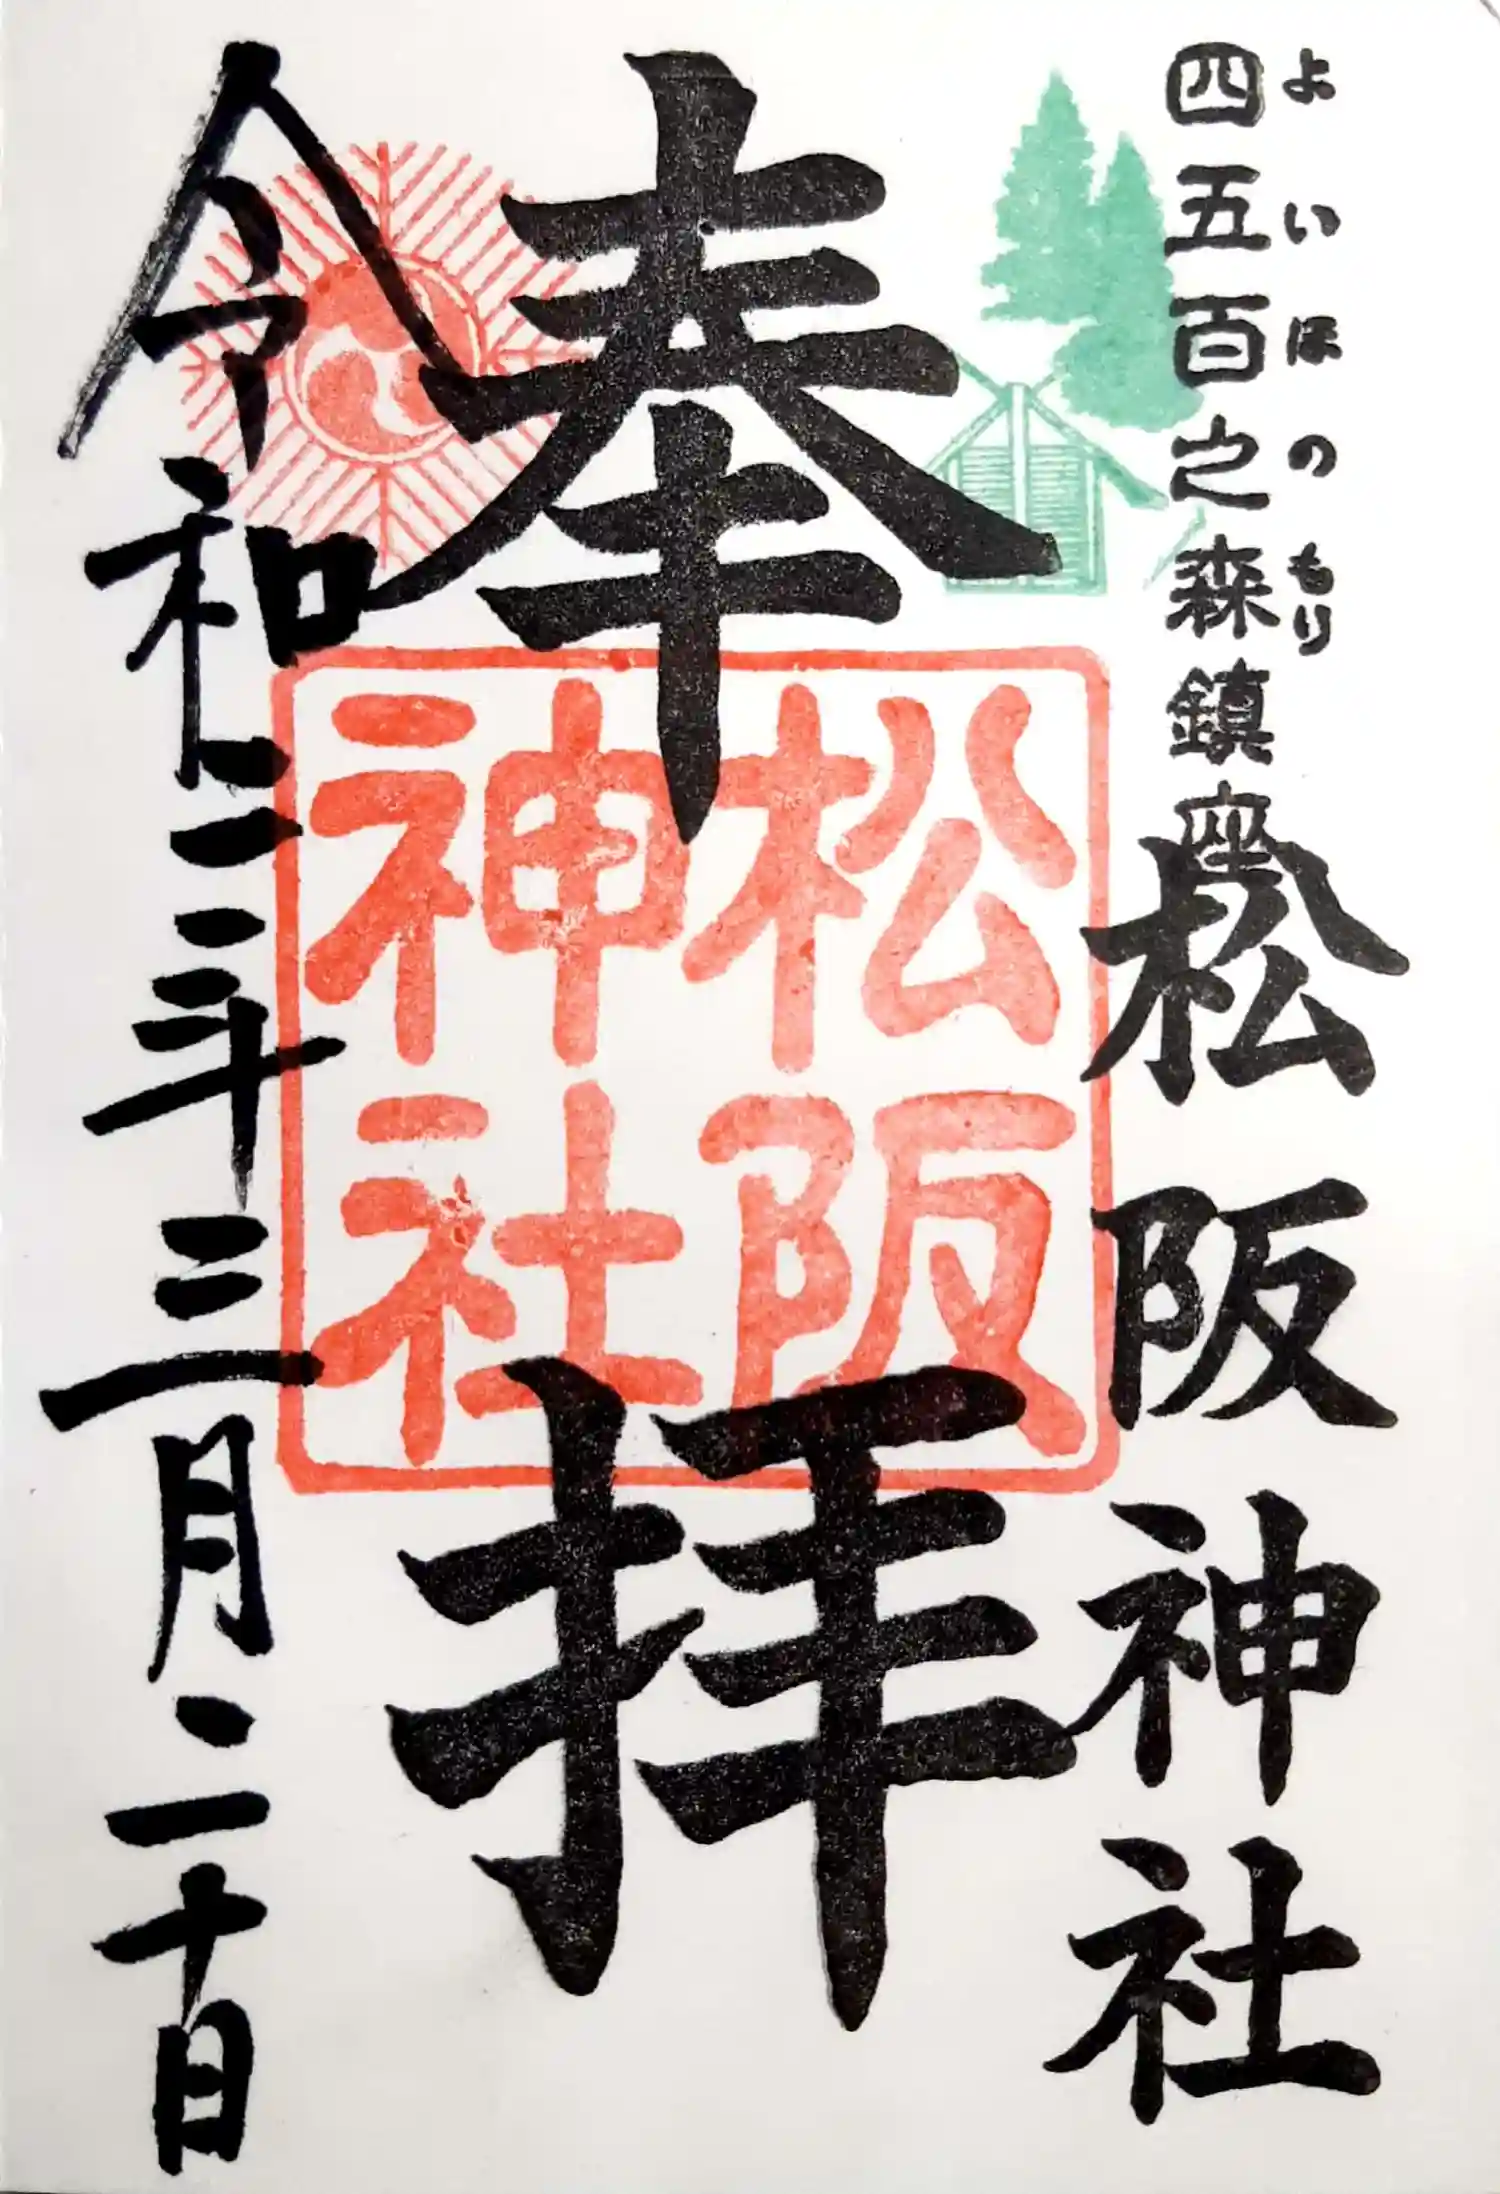 よいほのもり
四五百之森鎮座
松阪神社
奉拝
松阪
神社
令和二年三月二十日